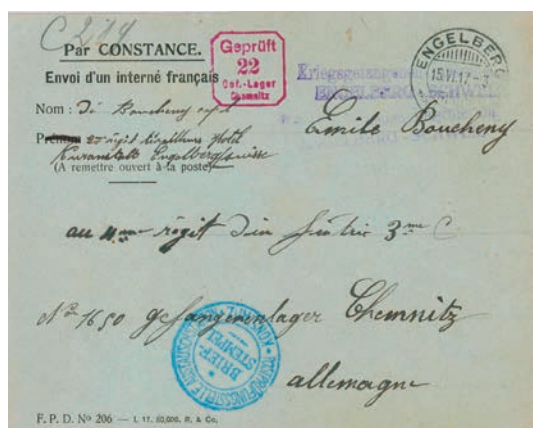 C 214
Par CONSTANCE.
Envoi d'un interné français
Nom : Boucheny
Prénom régit tirailleurs Hotel
Kuranstalt Engelberg suisse
(A remettre ouvert à la poste)
Geprüft
22
Gef.-Lager
Chemnitz
Kriegsgefangenen
ENGELBERG
ENGELBERG
15.VI.17
Emile Boucheny
au 4me régit 3me C
No 1650 gefangenenlager Chemnitz
BRIEF-
STEMPEL
allemagne
F. P. D. No 206 — I. 17. 60,000. R. & Co.